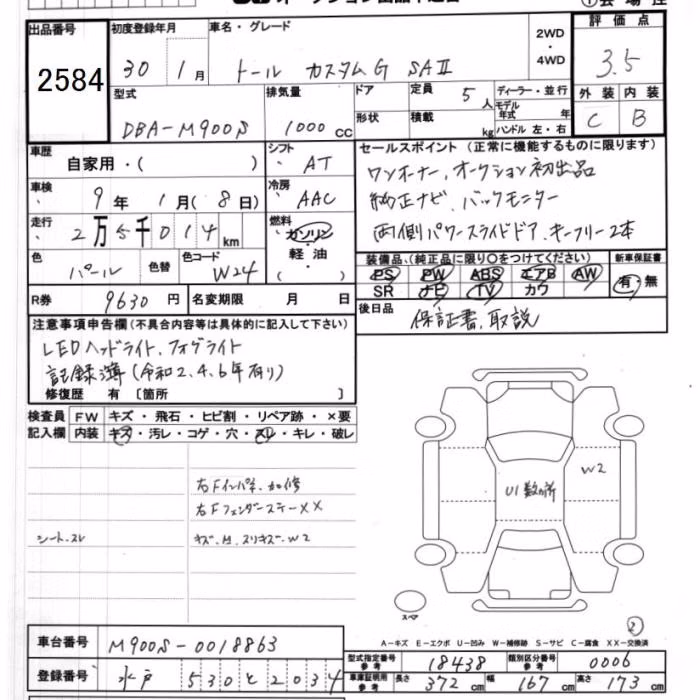 出品番号
2584
初度登録年月
30年1月
車名・グレード
トール カスタムG SAⅡ
2WD
・
4WD
評価点
3.5
外装 内装
C B
型式
DBA-M900S
排気量
1000 cc
ドア
形状
定員
5人
積載
kg
ディーラー・並行
モデル年式 年
ハンドル 左・右
車歴
自家用・( )
シフト
AT
車検
9年1月(8日)
冷房
AAC
走行
2万5千014km
燃料
ガソリン
・
軽油
( )
色
パール
色替
色コード
W24
R券
9630円
名変期限 月 日
セールスポイント (正常に機能するものに限ります)
ワンオーナー、オークション初出品
純正ナビ、バックモニター
両側パワースライドドア、キーフリー2本
装備品、(純正品に限り○をつけてください)
PS PW ABS エアB AW
SR ナビ TV カワ
新車保証書
有・無
後日品
保証書、取説
注意事項申告欄(不具合内容等は具体的に記入して下さい)
LEDヘッドライト、フォグライト
記録簿(令和2.4.6年有り)
修復歴 有 〔箇所 〕
検査員記入欄
FW キズ・飛石・ヒビ割・リペア跡・×要
内装 キズ・汚レ・コゲ・穴・スレ・キレ・破レ
右Fインパネ、加修
右FフェンダーステーXX
シート、スレ
キズ、凹、スリキズ、W2
W2
U1数ヶ所
スペア
2
A-キズ E-エクボ U-凹み W-補修跡 S-サビ C-腐食 XX-交換済
車台番号
M900S-0018863
登録番号
水戸 530 と 2034
型式指定番号
参考
18438
類別区分番号
参考
0006
車庫証明用
参考
長さ 372cm 幅 167cm 高さ 173cm